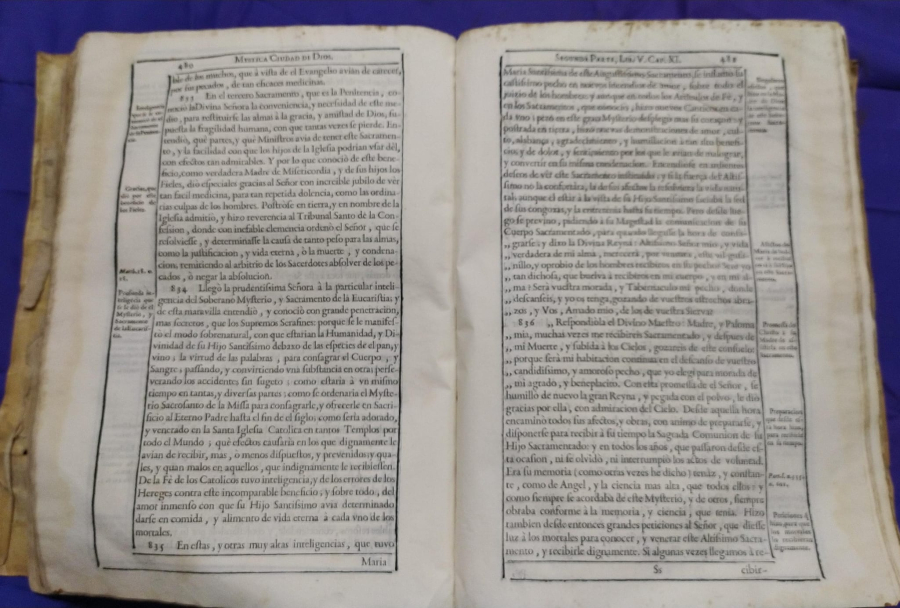 480
MYSTICA CIUDAD DE DIOS.
ble de los muchos, que à vista de el Evangelio avian de carecer,
por sus pecados, de tan eficaces medicinas.
833 En el tercero Sacramento, que es la Penitencia, co-
nociò la Divina Señora la conveniencia, y necesidad de este me-
dio, para restituirse las almas à la gracia, y amistad de Dios, su-
puesta la fragilidad humana, con que tantas vezes se pierde. En-
tendiò, què partes, y què Ministros avia de tener este Sacramen-
to, y la facilidad con que los hijos de la Iglesia podrian vsar dèl,
con efectos tan admirables. Y por lo que conociò de este bene-
ficio, como verdadera Madre de Misericordia, y de sus hijos los
Fieles, diò especiales gracias al Señor con increible jubilo de vèr
tan facil medicina, para tan repetida dolencia, como las ordina-
rias culpas de los hombres. Postròse en tierra, y en nombre de la
Iglesia admitiò, y hizo reverencia al Tribunal Santo de la Con-
fession, donde con inefable clemencia ordenò el Señor, que se
resolviesse, y determinasse la causa de tanto peso para las almas,
como la justificacion, y vida eterna, ò la muerte, y condena-
cion; remitiendo al arbitrio de los Sacerdotes absolver de los pe-
cados, ò negar la absolucion.
834 Llegò la prudentissima Señora à la particular inteli-
gencia del Soberano Mysterio, y Sacramento de la Eucaristia; y
de esta maravilla entendiò, y conociò con grande penetracion,
mas secretos, que los Supremos Serafines: porque se le manifes-
tò el modo sobrenatural, con que estarian la Humanidad, y Di-
vinidad de su Hijo Santissimo debaxo de las especies de pan, y
vino; la virtud de las palabras, para consagrar el Cuerpo, y
Sangre, passando, y convirtiendo vna substancia en otra, perse-
verando los accidentes sin sugeto; como estaria à vn mismo
tiempo en tantas, y diversas partes; como se ordenaria el Myste-
rio Sacrosanto de la Missa para consagrarle, y ofrecerle en Sacri-
ficio al Eterno Padre hasta el fin de el siglo; como seria adorado,
y venerado en la Santa Iglesia Catolica en tantos Templos por
todo el Mundo; què efectos causaria en los que dignamente le
avian de recibir, mas, ò menos dispuestos, y prevenidos; y qua-
les, y quan malos en aquellos, que indignamente le recibiessen.
De la Fè de los Catolicos tuvo inteligencia, y de los errores de los
Hereges contra este incomparable beneficio; y sobre todo, del
amor inmenso con que su Hijo Santissimo avia determinado
darse en comida, y alimento de vida eterna à cada vno de los
mortales.
835 En estas, y otras muy altas inteligencias, que tuvo
Maria
SEGUNDA PARTE, LIB. V. CAP. XI.
481
Maria Santissima de este Augustissimo Sacramento, se inflamò su
castissimo pecho en nuevos incendios de amor, sobre todo el
juizio de los hombres; y aunque en todos los Articulos de Fè, y
en los Sacramentos, que conociò, hizo nuevos Canticos en ca-
da vno; pero en este gran Mysterio desplegò mas su coraçon; y
postrada en tierra, hizo nuevas demonstraciones de amor, cul-
to, alabança, agradecimiento, y humillacion à tan alto benefi-
cio; y de dolor, y sentimiento por los que le avian de malograr,
y convertir en su misma condenacion. Encendiòse en ardientes
deseos de vèr este Sacramento instituido; y si la fuerça del Altis-
simo no la confortàra, la de sus afectos la resolviera la vida natu-
ral; aunque el estar à la vista de su Hijo Santissimo saciaba la sed
de sus congojas, y la entretenia hasta su tiempo. Pero desde lue-
go se previno, pidiendo à su Magestad la comunicacion de su
Cuerpo Sacramentado, para quando llegasse la hora de consa-
„ grarse; y dixo la Divina Reyna: Altissimo Señor mio, y vida
„ verdadera de mi alma, merecerà, por ventura, este vil gusa-
„ nillo, y oprobio de los hombres recibiros en su pecho? Serè yo
„ tan dichosa, que buelva à recibiros en mi cuerpo, y en mi al-
„ ma? Serà vuestra morada, y Tabernaculo mi pecho, donde
„ descanseis, y yo os tenga, gozando de vuestros estrechos abra-
„ zos, y Vos, Amado mio, de los de vuestra Sierva?
836 „ Respondiòla el Divino Maestro: Madre, y Paloma
„ mia, muchas vezes me recibireis Sacramentado, y despues de
„ mi Muerte, y subida à los Cielos, gozareis de este consuelo;
„ porque serà mi habitacion continua en el descanso de vuestro
„ candidissimo, y amoroso pecho, que yo elegì para morada de
„ mi agrado, y beneplacito. Con esta promessa de el Señor, se
humillò de nuevo la gran Reyna, y pegada con el polvo, le diò
gracias por ella, con admiracion del Cielo. Desde aquella hora
encaminò todos sus afectos, y obras, con animo de prepararse, y
disponerse para recibir à su tiempo la Sagrada Comunion de su
Hijo Sacramentado; y en todos los años, que passaron desde es-
ta ocasion, ni se olvidò, ni interrumpiò los actos de voluntad.
Era su memoria (como otras vezes he dicho) tenàz, y constan-
te, como de Angel, y la ciencia mas alta, que todos ellos; y
como siempre se acordaba de este Mysterio, y de otros, siempre
obraba conforme à la memoria, y ciencia, que tenia. Hizo
tambien desde entonces grandes peticiones al Señor, que diesse
luz à los mortales para conocer, y venerar este Altissimo Sacra-
mento, y recibirle dignamente. Si algunas vezes llegamos à re-
Ss
cibir-